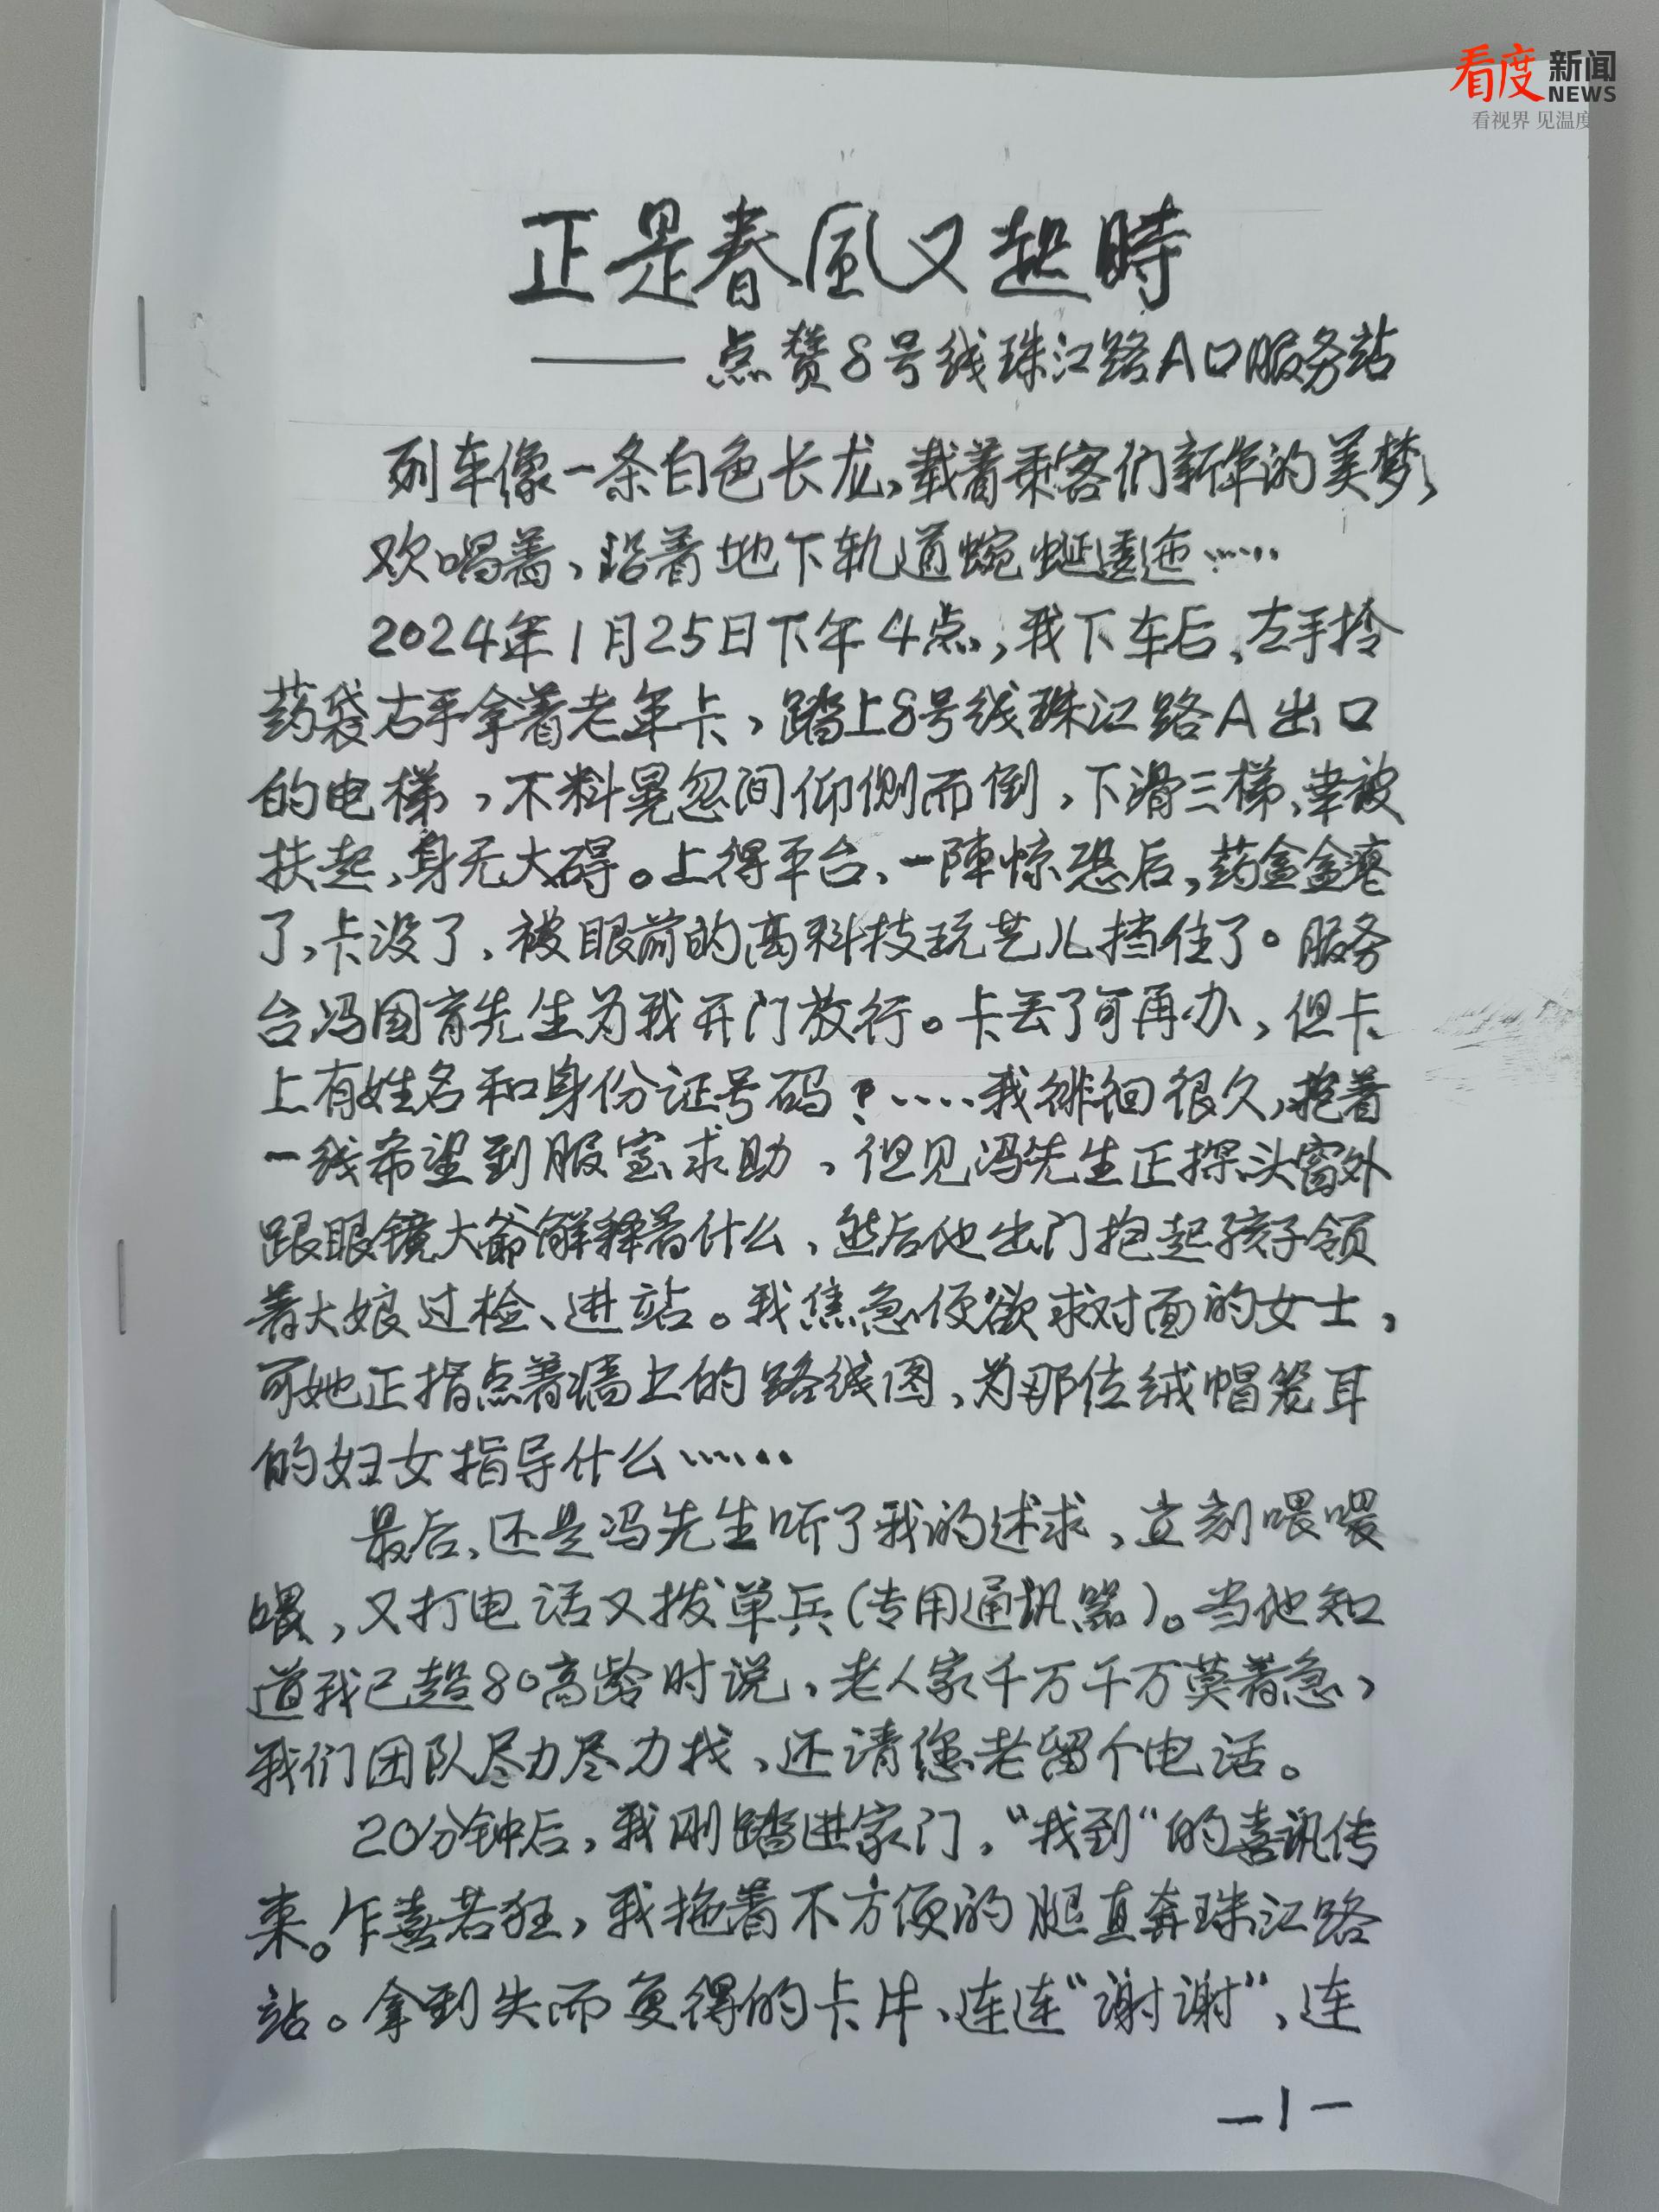 看度新闻
NEWS
看视界 见温度
正是春風又起時
——点赞8号线珠江路A口服务站
列车像一条白色长龙,载着乘客们新年的美梦,
欢唱着,沿着地下轨道蜿蜒逶迤……
2024年1月25日下午4点,我下车后,左手拎
药袋右手拿着老年卡,踏上8号线珠江路A出口
的电梯,不料晃忽间仰侧而倒,下滑三梯,幸被
扶起,身无大碍。上得平台,一陣惊恐后,药盒盒瘪
了,卡没了,被眼前的高科技玩艺儿挡住了。服务
台冯国育先生为我开门放行。卡丢了可再办,但卡
上有姓名和身份证号码?……我徘徊很久,抱着
一线希望到服室求助,但见冯先生正探头窗外
跟眼镜大爷解释着什么,然后他出门抱起孩子领
着大娘过检、进站。我焦急便欲求对面的女士,
可她正指点着墙上的路线图,为那位绒帽笼耳
的妇女指导什么……
最后,还是冯先生听了我的述求,立刻喂喂
喂,又打电话又拨单兵(专用通讯器)。当他知
道我已超80高龄时说,老人家千万千万莫着急,
我们团队尽力尽力找,还请您老留个电话。
20分钟后,我刚踏进家门,“找到“的喜讯传
来。乍喜若狂,我拖着不方便的腿直奔珠江路
站。拿到失而复得的卡片,连连“谢谢”,连
—1—